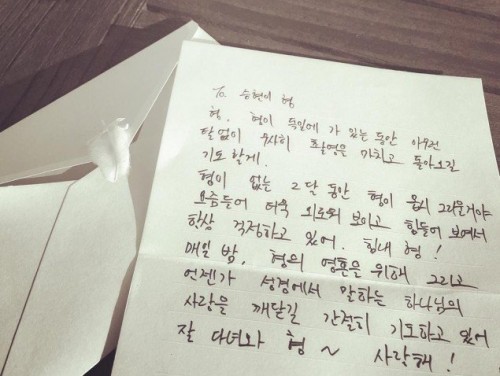 To 승현이 형
형. 형이 독일에 가 있는 동안 아무런
탈 없이 무사히 촬영을 마치고 돌아오길
기도할게.
형이 없는 2달 동안 형이 몹시 그리울거야
요즘들어 더욱 외로워 보이고 힘들어 보여서
항상 걱정하고 있어. 힘내 형!
매일 밤, 형의 영혼을 위해 그리고
언젠가 성경에서 말하는 하나님의
사랑을 깨닫길 간절히 기도하고 있어
잘 다녀와 형 ~ 사랑해!